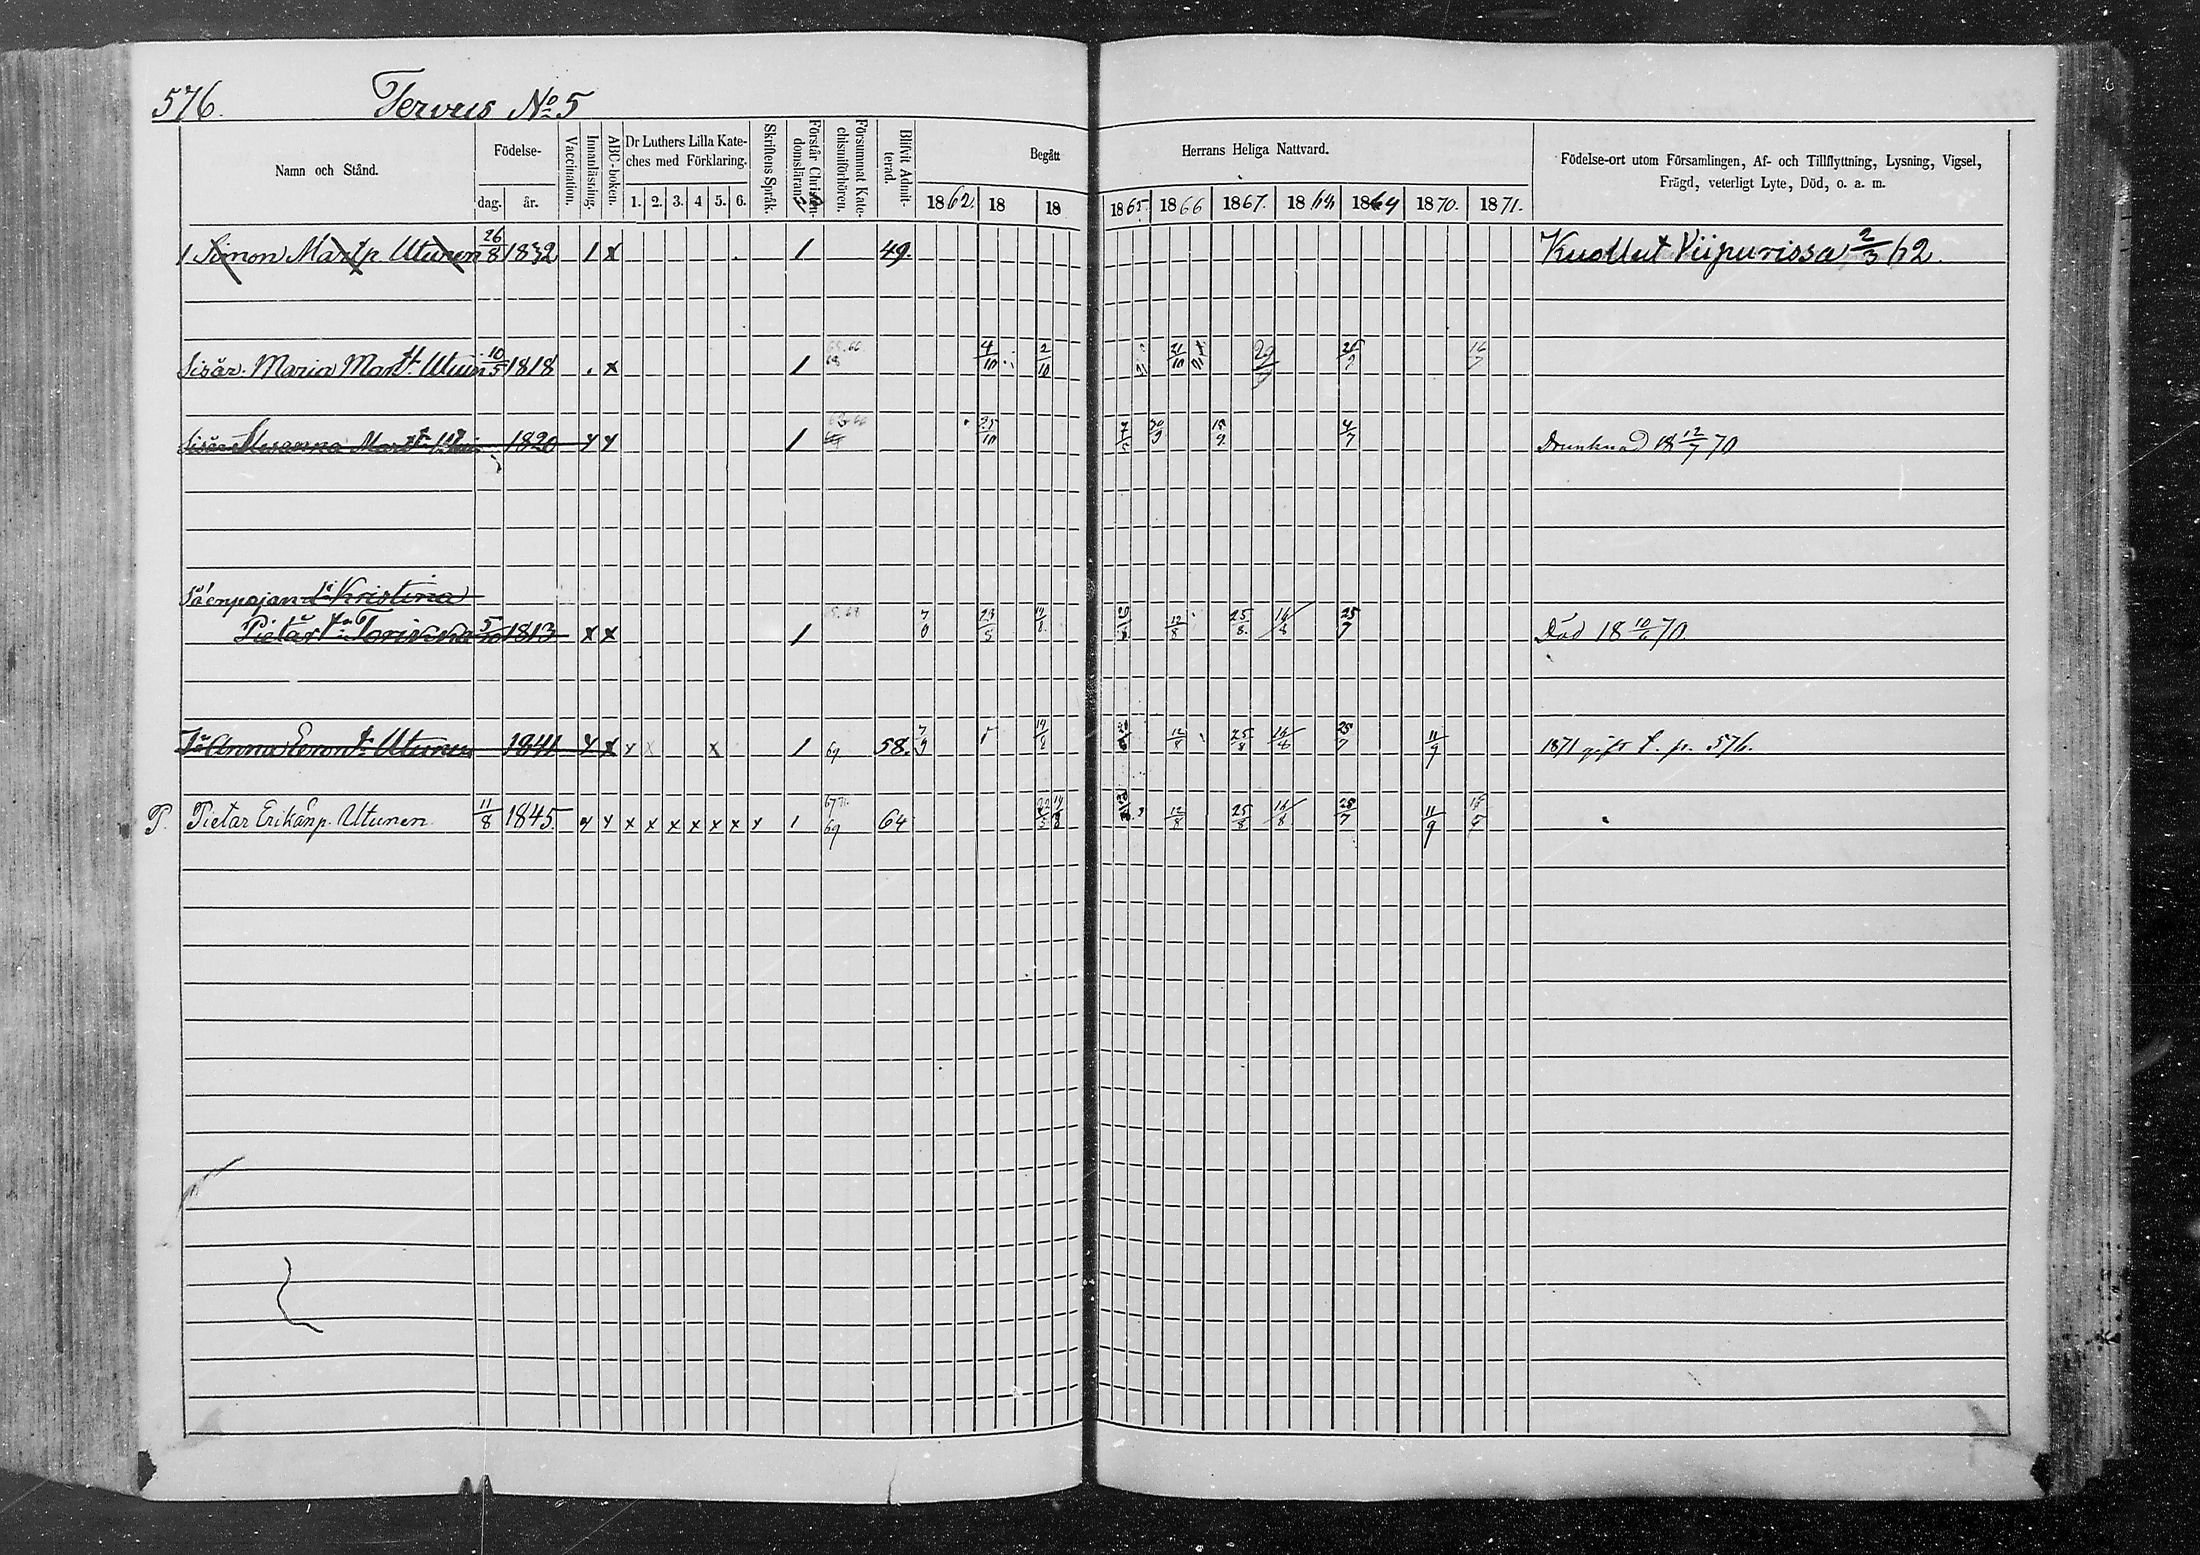 576. Tervus No 5
Namn och Stånd. Födelse- dag. år. Vaccination. Innanläsning. ABC-boken. Dr Luthers Lilla Kateches med Förklaring. 1. 2. 3. 4 5. 6. Skriftens Språk. Förstår Christendomsläran. Försummat Katechismiförhören. Blifvit Admitterad. Begått Herrans Heliga Nattvard. 1862. 18 18 1865. 1866 1867. 1868 1869 1870. 1871. Födelse-ort utom Församlingen, Af- och Tillflyttning, Lysning, Vigsel, Frägd, veterligt Lyte, Död, o. a. m.
1 Simon Martp Utunen 26/8 1832 1 x 1 49. Kuollut Viipurissa 2/3 62.
Sisär. Maria Mart. t. Utun 10/5 1818 x 1 4/10 2/10 21/10
1820 y y 1 25/10 30/9 15/9 4/7 Drunknad 18 12/7 70
Kristina
Pietar 1813 x x 1 23/5 12/8 25/8 16/8 25/7 Död 18 70.
Anna Utunen 1841 y x y x x 1 69. 58. 7/9 12/8 25/8 16/8 25/7 11/9 1871 gift t. p. 576.
P. Pietar Erikånp. Utunen 11/8 1845. y y x x x x x x y 1 69 64 12/8 25/8 16/8 25/7 11/9